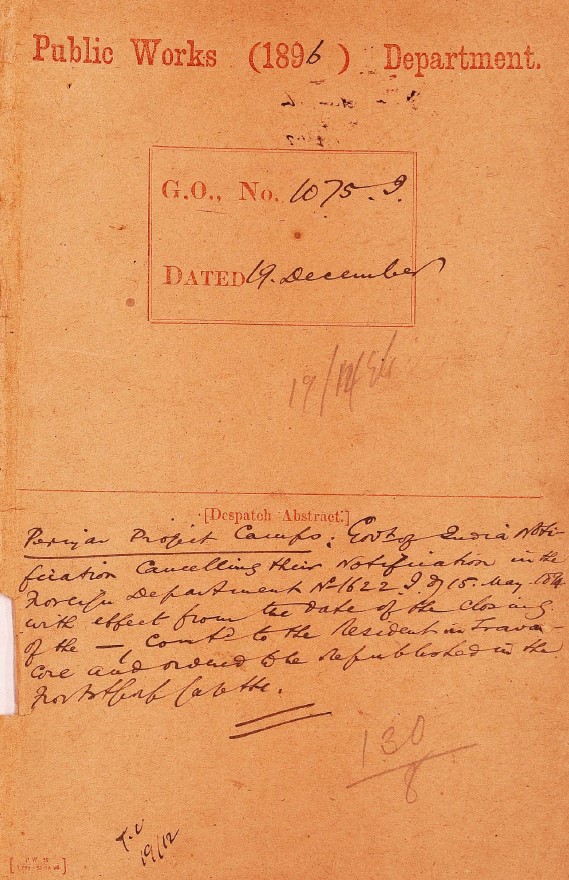 Public Works (1896) Department.
G.O., No. 1075. I.
DATED 19. December
19/12/96
[Despatch Abstract.]
Periyar Project Camps: Govt of India Noti-
fication Cancelling their Notification in the
Foreign Department No 1622. I. of 15. May
with effect from the date of the closing
of the —, Comtd to the Resident in Travan-
core and ordered to be Republished in the
Fort St George Gazette.
130
8
T.C
19/12